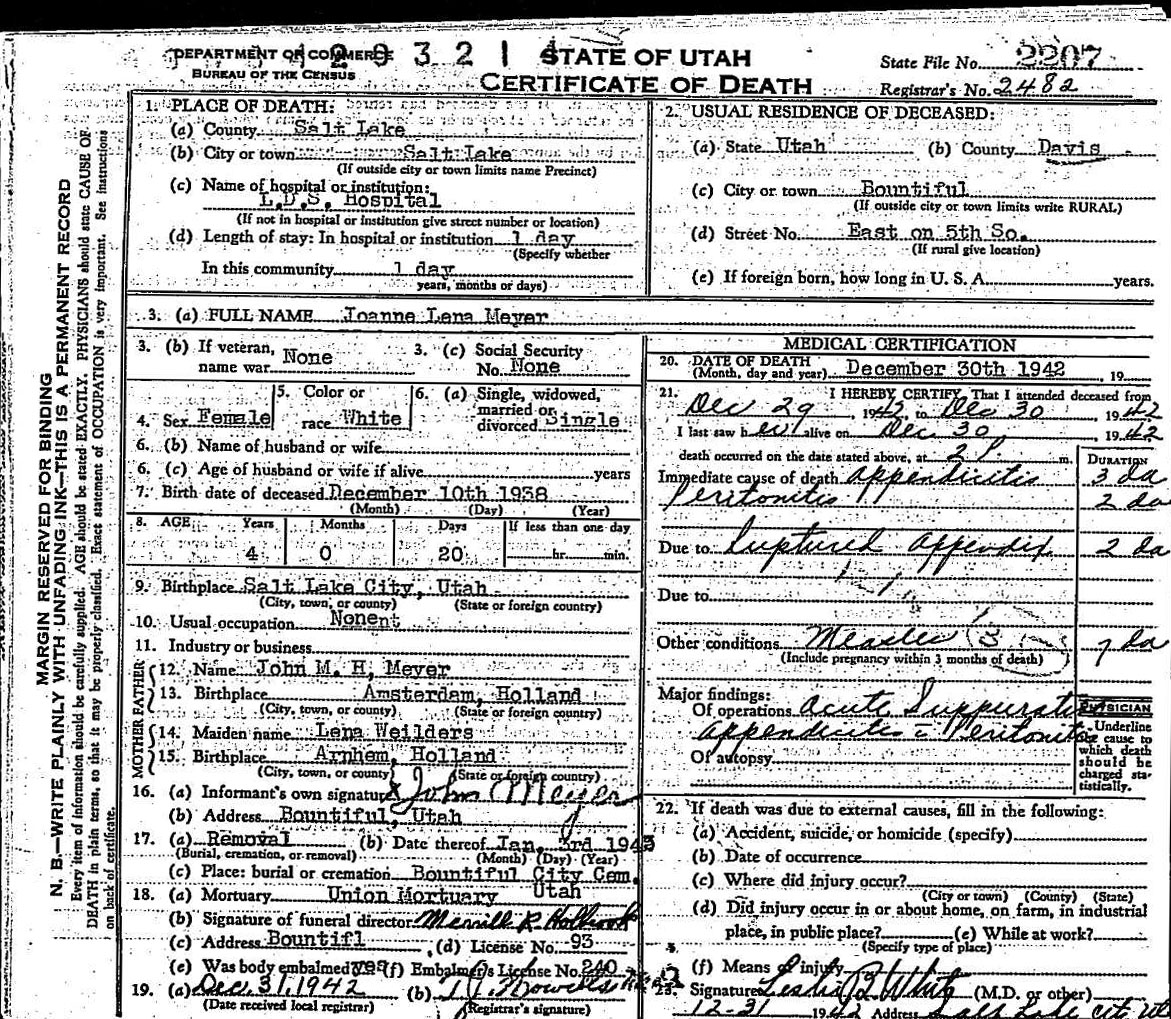 DEPARTMENT OF COMMERCE
BUREAU OF THE CENSUS
2 9 3 2 1 4
STATE OF UTAH
CERTIFICATE OF DEATH
State File No. 2207
Registrar's No. 2482
MARGIN RESERVED FOR BINDING
N. B.—WRITE PLAINLY WITH UNFADING INK—THIS IS A PERMANENT RECORD
Every item of information should be carefully supplied. AGE should be stated EXACTLY. PHYSICIANS should state CAUSE OF
DEATH in plain terms, so that it may be properly classified. Exact statement of OCCUPATION is very important. See instructions
on back of certificate.
1. PLACE OF DEATH:
(a) County Salt Lake
(b) City or town Salt Lake
(If outside city or town limits name Precinct)
(c) Name of hospital or institution:
L.D.S. Hospital
(If not in hospital or institution give street number or location)
(d) Length of stay: In hospital or institution 1 day
(Specify whether
In this community 1 day
years, months or days)
2. USUAL RESIDENCE OF DECEASED:
(a) State Utah (b) County Davis
(c) City or town Bountiful
(If outside city or town limits write RURAL)
(d) Street No. East on 5th So.
(If rural give location)
(e) If foreign born, how long in U. S. A. years.
3. (a) FULL NAME Joanne Lena Meyer
3. (b) If veteran, name war None
3. (c) Social Security No. None
4. Sex Female
5. Color or race White
6. (a) Single, widowed, married or divorced Single
6. (b) Name of husband or wife
6. (c) Age of husband or wife if alive years
7. Birth date of deceased December 10th 1938
(Month) (Day) (Year)
8. AGE Years Months Days If less than one day
4 0 20 hr. min.
9. Birthplace Salt Lake City, Utah
(City, town, or county) (State or foreign country)
10. Usual occupation Nonent
11. Industry or business
FATHER
12. Name John M. H. Meyer
13. Birthplace Amsterdam, Holland
(City, town, or county) (State or foreign country)
MOTHER
14. Maiden name Lena Weilders
15. Birthplace Arnhem, Holland
(City, town, or county) (State or foreign country)
16. (a) Informant's own signature x John Meyer
(b) Address Bountiful, Utah
17. (a) Removal (b) Date thereof Jan. 3rd 1943
(Burial, cremation, or removal) (Month) (Day) (Year)
(c) Place: burial or cremation Bountiful City Cem.
Utah
18. (a) Mortuary Union Mortuary
(b) Signature of funeral director Merrill R. Holbrook
(c) Address Bountifl (d) License No. 93
(e) Was body embalmed yes (f) Embalmer's License No. 240
19. (a) Dec. 31, 1942 (b) T. J. Howells
(Date received local registrar) (Registrar's signature)
MEDICAL CERTIFICATION
20. DATE OF DEATH
(Month, day and year) December 30th 1942, 19
21. I HEREBY CERTIFY, That I attended deceased from
Dec 29 1942, to Dec 30 1942
I last saw her alive on Dec. 30, 1942
death occurred on the date stated above, at 2 P. m.
DURATION
Immediate cause of death appendicitis 3 da
Peritonitis 2 da
Due to Ruptured appendix 2 da
Due to
Other conditions Measles 3 7 da
(Include pregnancy within 3 months of death)
Major findings:
Of operations Acute Suppurative
appendicitis c Peritonitis
Of autopsy
PHYSICIAN
Underline
the cause to
which death
should be
charged sta-
tistically.
22. If death was due to external causes, fill in the following:
(a) Accident, suicide, or homicide (specify)
(b) Date of occurrence
(c) Where did injury occur?
(City or town) (County) (State)
(d) Did injury occur in or about home, on farm, in industrial
place, in public place? (e) While at work?
(Specify type of place)
(f) Means of injury
23. Signature Leslie B. White (M.D. or other)
12-31 1942 Address Salt Lake City Ut